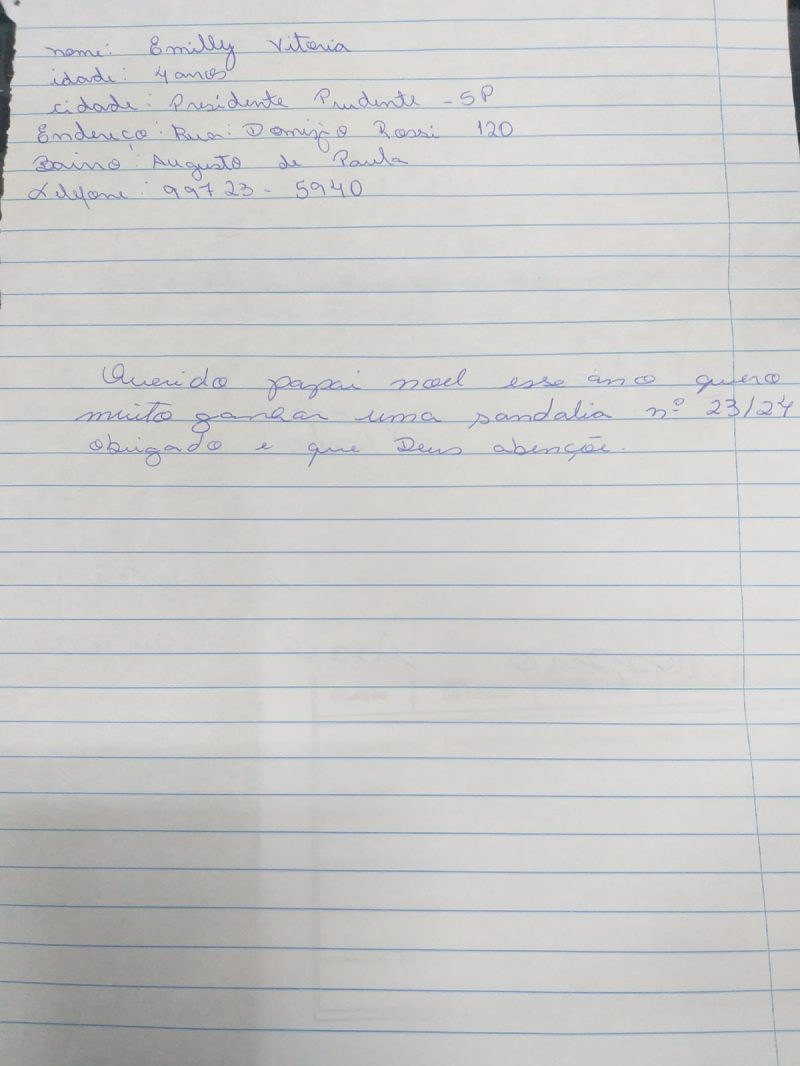 nome: Emilly Vitoria
idade: 4 anos
cidade: Presidente Prudente - SP
Endereço: Rua: Domição Rossi 120
Bairro: Augusto de Paula
Telefone: 99723-5940
Querido papai noel esse ano quero
muito ganhar uma sandalia nº 23/24
obrigado e que Deus abençõe.